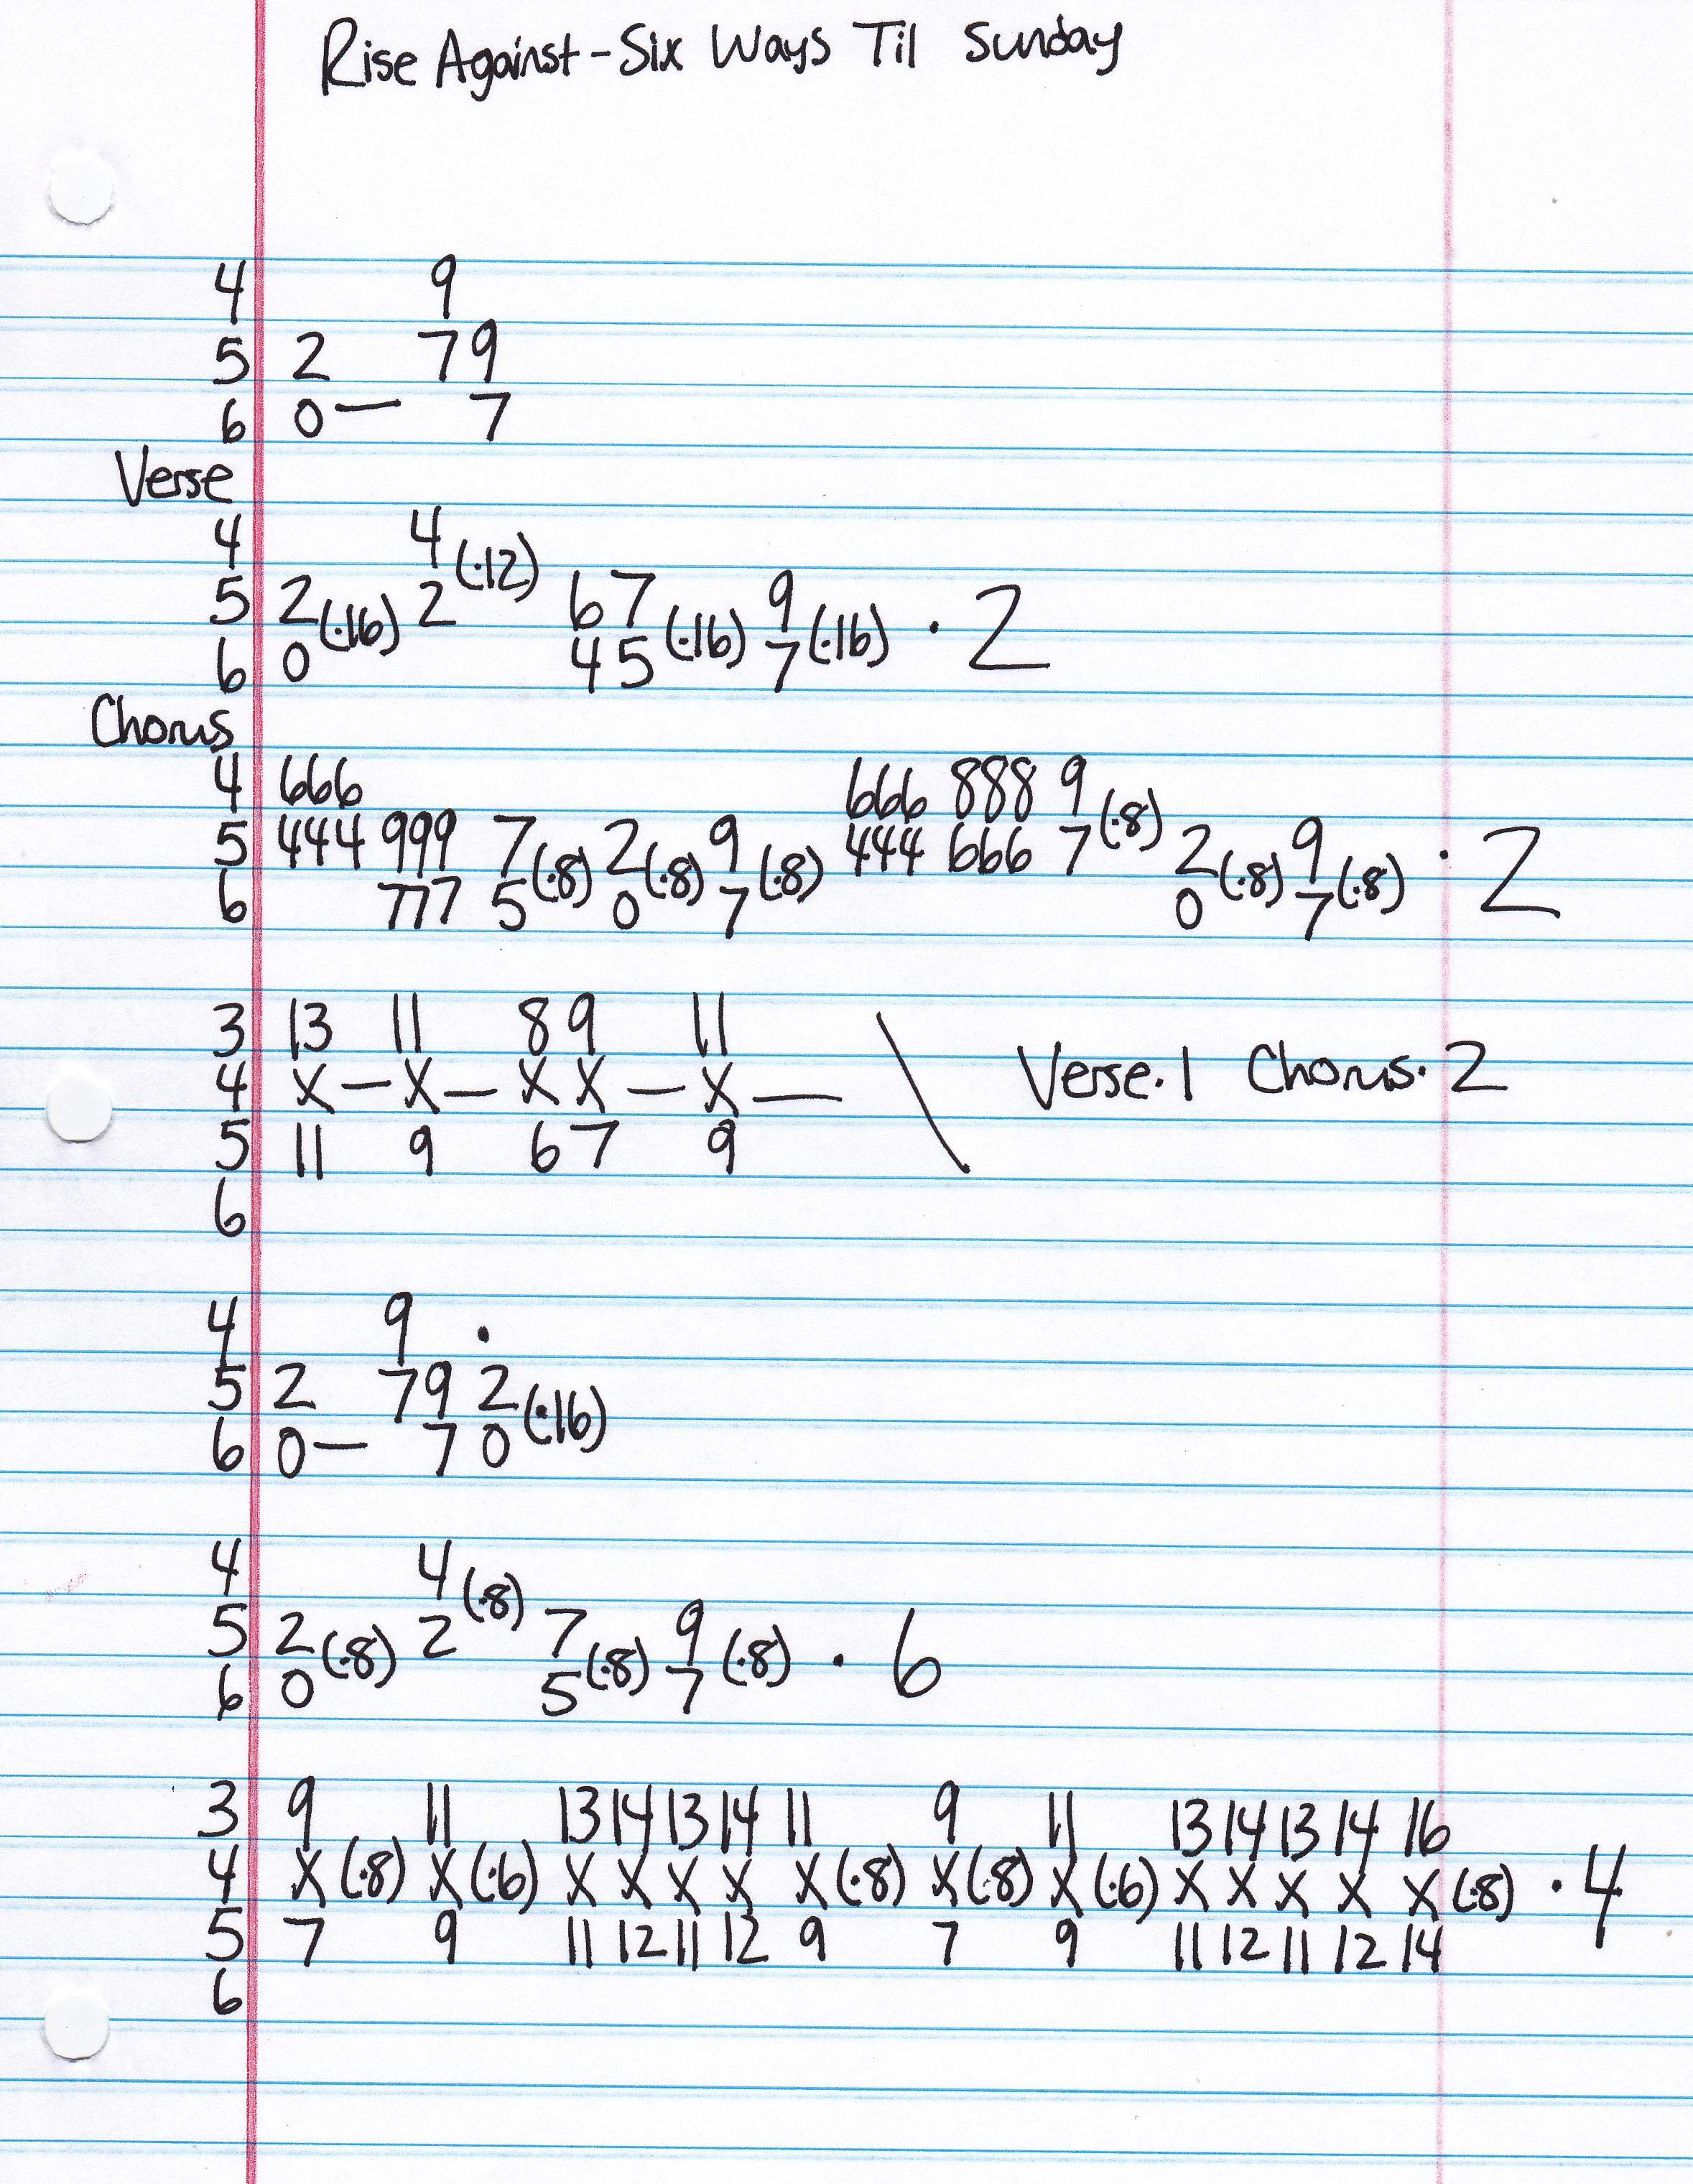 Rise Against - Six Ways Til Sunday
4 9
5 2 7 9
6 0 — 7
Verse
4 4 (·12)
5 2 (·16) 2 6 7 (·16) 9 (·16) · 2
6 0 4 5 7
Chorus
4 666 666 888 9 (·8)
5 444 999 7 (·8) 2 (·8) 9 (·8) 444 666 7 2 (·8) 9 (·8) · 2
6 777 5 0 7 0 7
3 13 11 8 9 11
4 x — x — x x — x — \ Verse · 1 Chorus · 2
5 11 9 6 7 9
6
4 9 ·
5 2 7 9 2 (·16)
6 0 — 7 0
4 4 (·8)
5 2 (·8) 2 7 (·8) 9 (·8) · 6
6 0 5 7
3 9 11 13 14 13 14 11 9 11 13 14 13 14 16
4 x (·8) x (·6) x x x x x (·8) x (·8) x (·6) x x x x x (·8) · 4
5 7 9 11 12 11 12 9 7 9 11 12 11 12 14
6